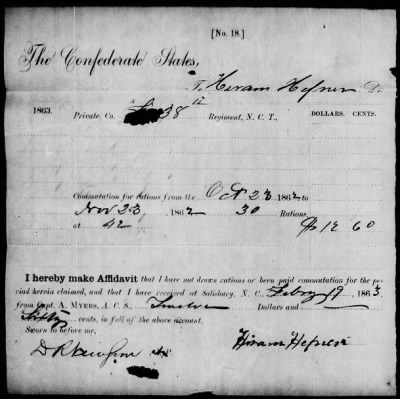 [No. 18.]
The Confederate States,
To Hiram Hefner Dr.
1863. DOLLARS. CENTS.
Private, Co. 38th Regiment, N. C. T.,
Commutation for rations from the Oct 23 1862 to
Nov 23, 1862 30 Rations,
at 42 $12 60
I hereby make Affidavit that I have not drawn rations or been paid commutation for the pe-
riod herein claimed, and that I have received at Salisbury, N. C., Feby 19 1863
from Capt. A. MYERS, A. C. S., Twelve Dollars and
Sixty cents, in full of the above account.
Sworn to before me,
Hiram Hefner